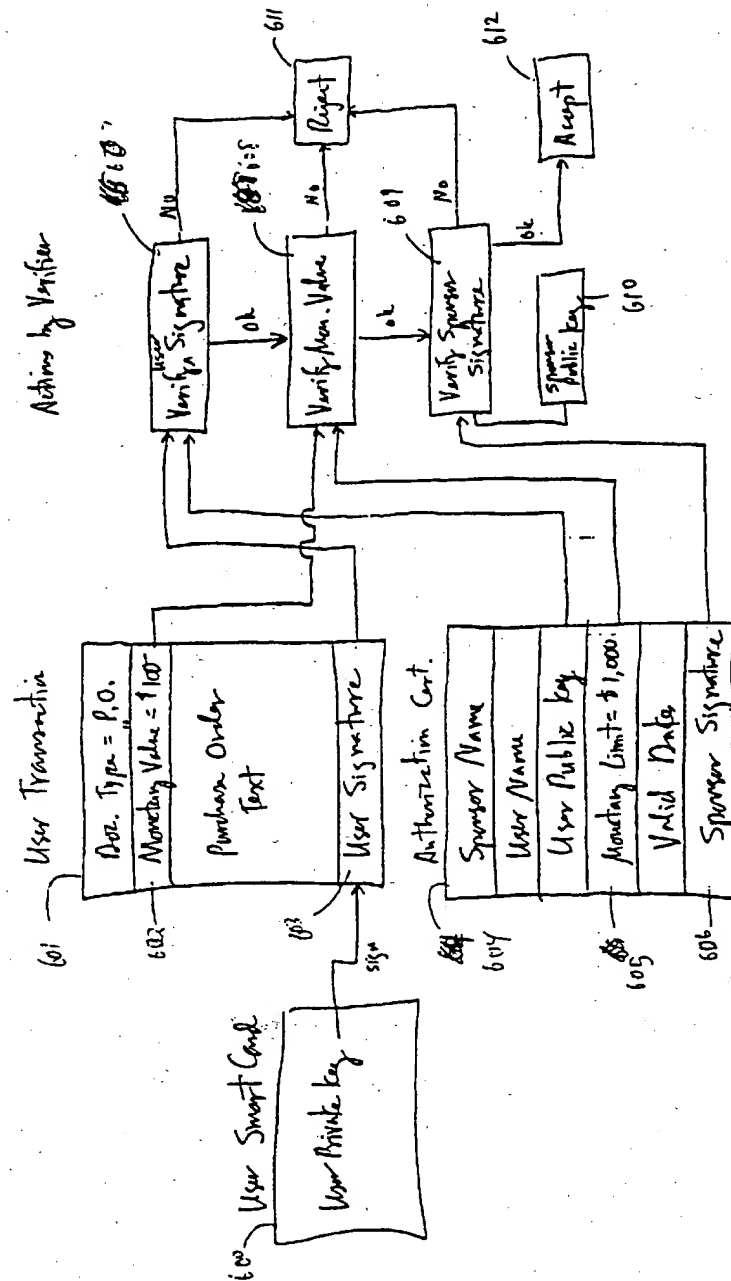 User Smart Card
600
User Private Key
sign
User Transaction
601
Doc. Type = P.O.
Monetary Value = $100
602
Purchase Order
Text
User Signature
603
Authorization Cert.
604
Sponsor Name
User Name
User Public Key
Monetary Limit = $1,000.
605
Valid Dates
Sponsor Signature
606
Actions by Verifier
Verify User Signature
No
ok
Verify Mon. Value
No
ok
609
Verify Sponsor
Signature
No
ok
Sponsor
Public Key
610
Reject
611
Accept
612